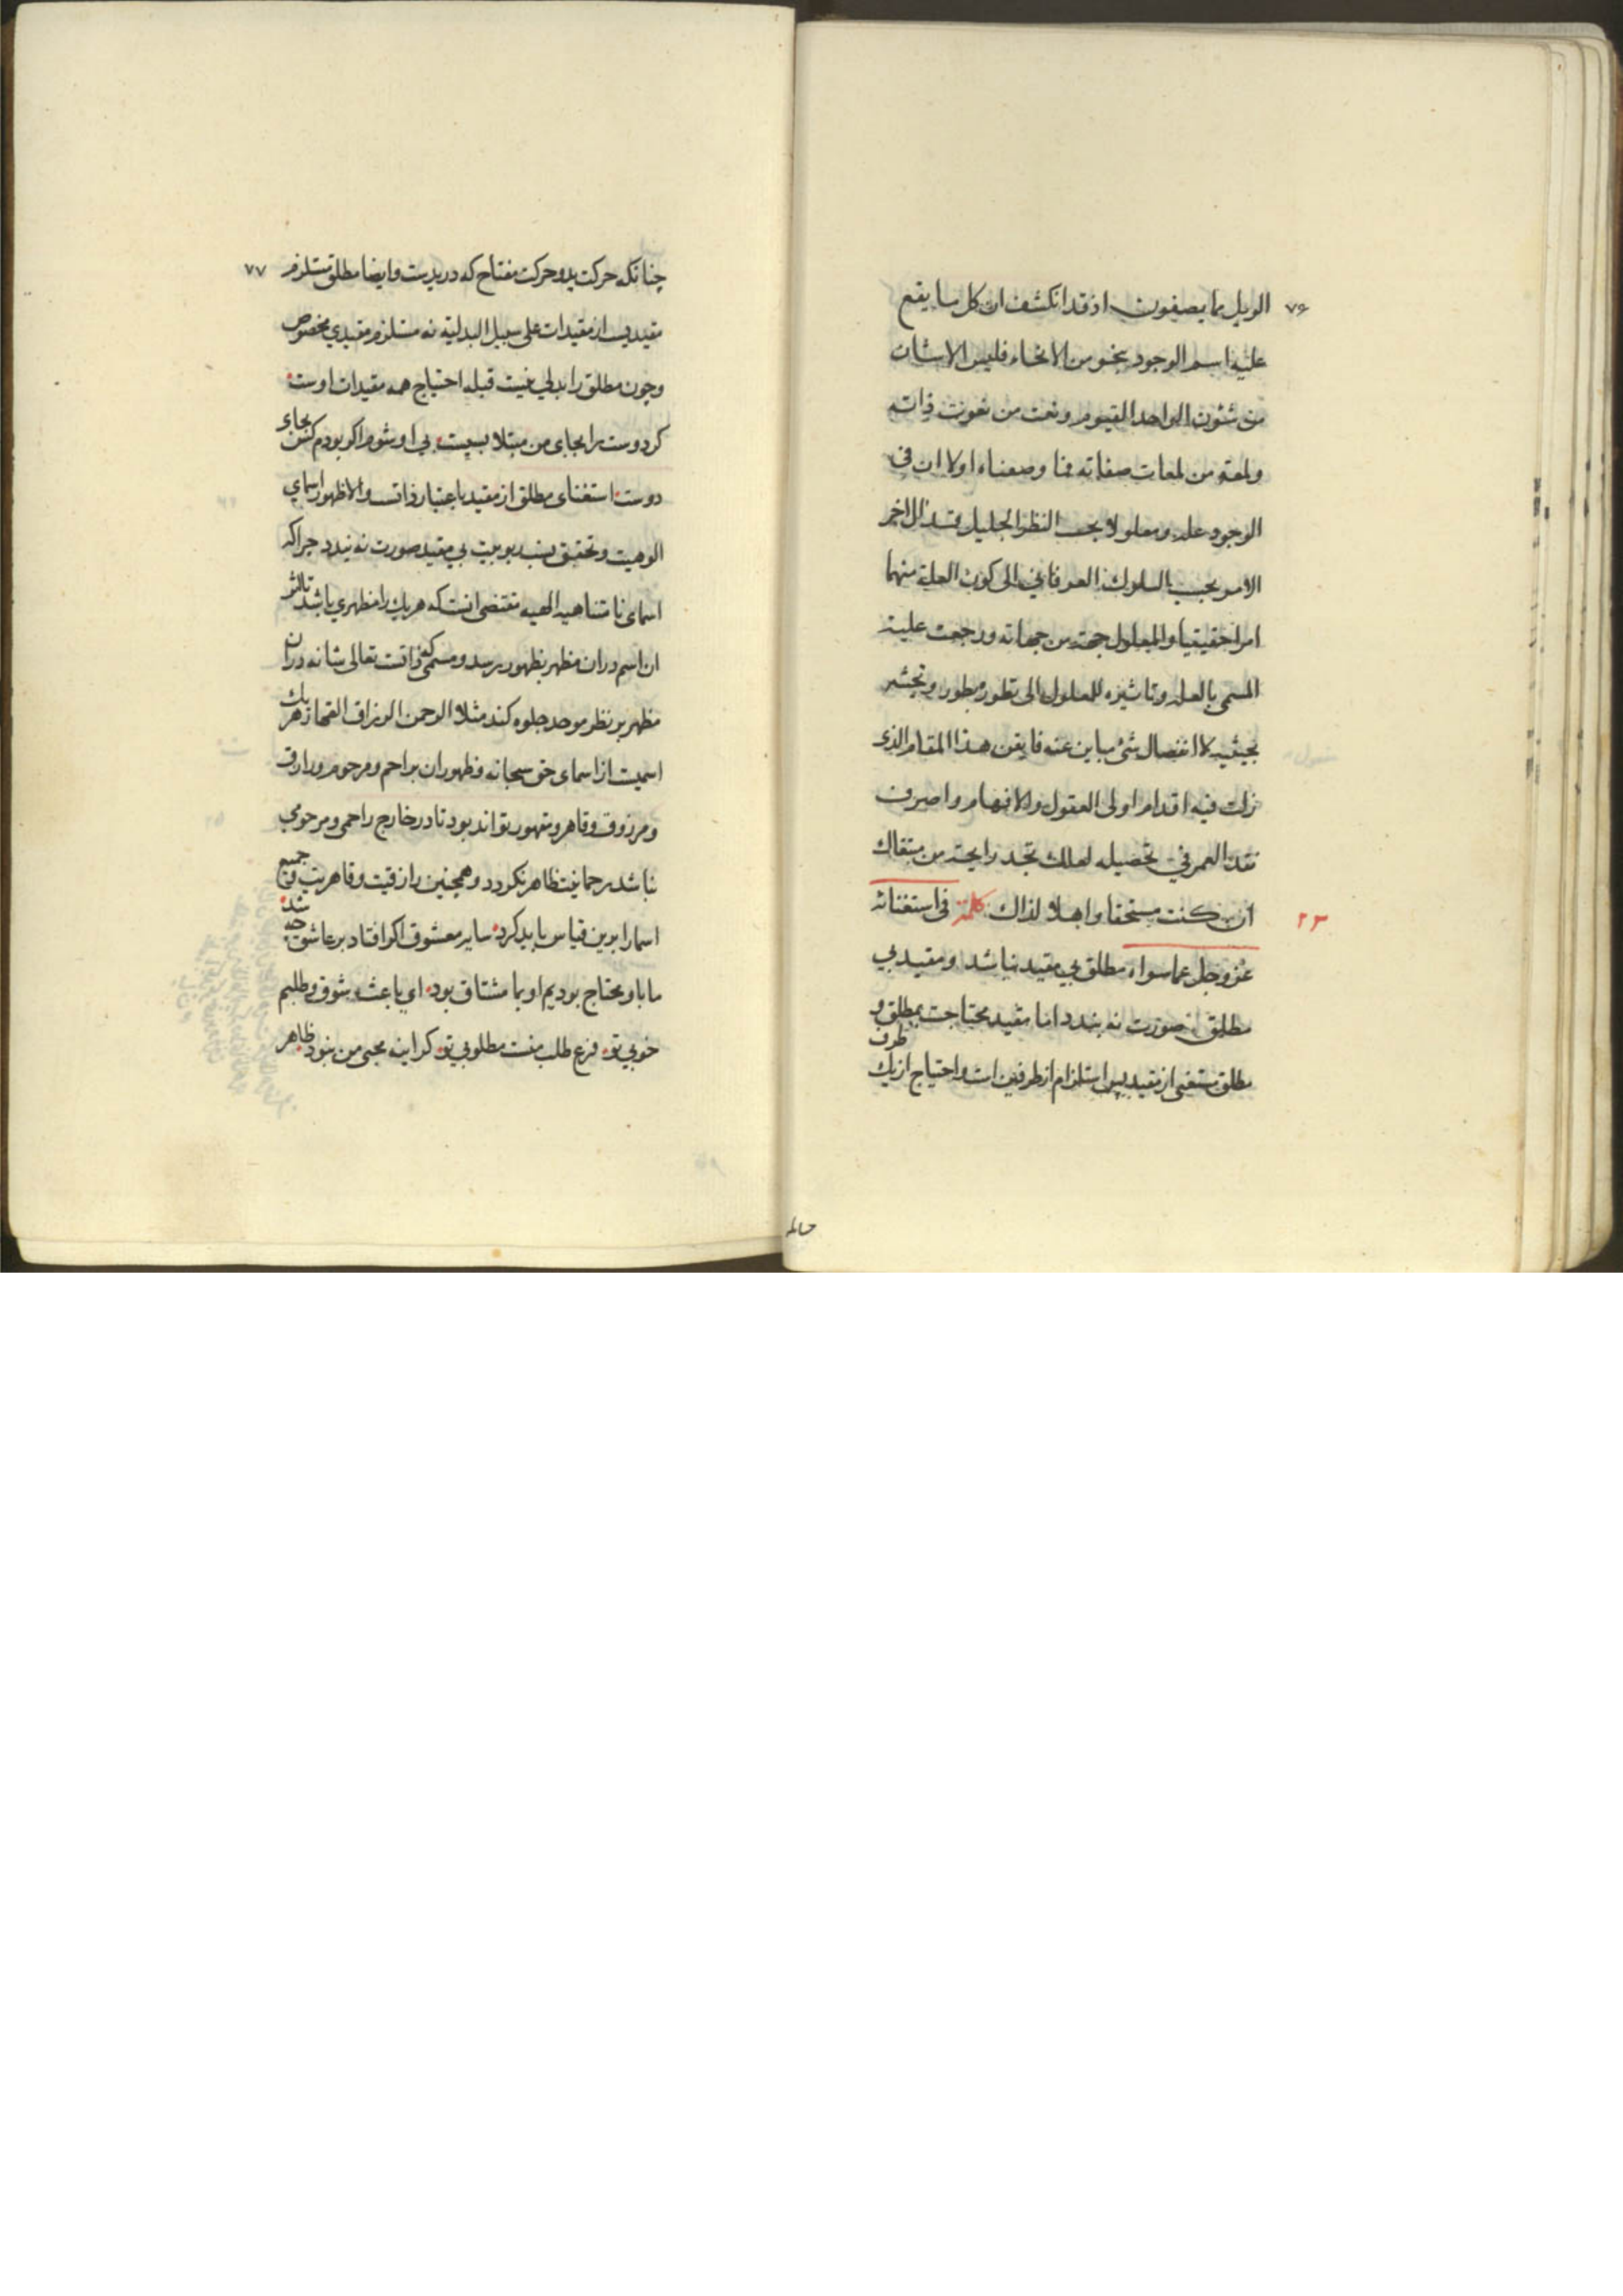 ٧۶
الويل مما يصفون اذ قد انكشف ان كل ما يقع
عليه اسم الوجود بنحو من الانحاء فليس الا شان
من شئون الواحد القيوم ونعت من نعوت ذاته
ولمعة من لمعات صفاته فما وصفناه اولا ان في
الوجود علة ومعلولا بحسب النظر الجليل قد ال اخر
الامر بحسب السلوك العرفاني الى كون العلة منهما
امرا حقيقيا والمعلول جهة من جهاته ورجعت علية
المسمى بالعلة وتاثيره للمعلول الى تطوره بطور وتحيثه
بحيثية لا انفصال شئ مباين عنه فايقن هذا المقام الذى
زلت فيه اقدام اولى العقول والافهام واصرف
نقد العمر في تحصيله لعلك تجد رايحة من مبتغاك
ان كنت مستحقا واهلا لذاك كلمة فى استغنائه
٢٣
عز وجل عما سواه مطلق بي مقيد نباشد و مقيد بي
مطلق صورت نه بندد اما مقيد محتاجت بمطلق و
مطلق مستغنى از مقيد پس استلزام از طرفين است و احتياج از يك طرف
حاله
٧٧
چنانكه حركت يد و حركت مفتاح كه در يد يست وايضا مطلق مستلزم
مقيديست از مقيدات على سبيل البدلية نه مستلزم مقيدي مخصوص
وچون مطلق را بدلي نيست قبله احتياج همه مقيدات اوست
كر دوست را بجاى من مبتلا بسيست بي او شوم اكر بودم كس بجاى
دوست استغناى مطلق از مقيد باعتبار ذاتست والا ظهور اسماي
الوهيت و تحقق نسب ربوبيت بي مقيد صورت نه بندد چرا كه
اسماى نامتناهيه الهيه مقتضى انست كه هر يك را مظهري باشد تا اثر
ان اسم در ان مظهر بظهور رسد و مسمى كه ذاتست تعالى شانه در ان
مظهر بر نظر موحد جلوه كند مثلا الرحمن الرزاق القهار هر يك
اسميست از اسماى حق سبحانه و ظهور ان براحم و مرحوم و رازق
و مرزوق و قاهر و مقهور تواند بود تا در خارج راحمي و مرحومي
نباشد رحمانيت ظاهر نكردد و همچنين رازقيت و قاهريت و جميع
اسما را برين قياس بايد كرد سايه معشوق اكر افتاد بر عاشق چه شد
ما باو محتاج بوديم او بما مشتاق بود اي باعث شوق و طلبم
خوبي تو فرع طلب منست مطلوبي تو كر اينه محبى من نبود ظاهر